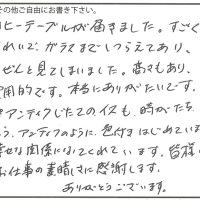 その他ご自由にお書き下さい。
ヒーテーブルが届きました。すごく
れいで、ガラスまでしつらえてあり、
ぜんと見てしまいました。高々もあり、
用的です。本当にありがたいです。
アンティクしたてのイスも、時がたち、
う、アンティクのように、色付きはじめています
幸せな関係になってくれています。皆様の
お仕事の素晴さに感謝します。
ありがとうございます。